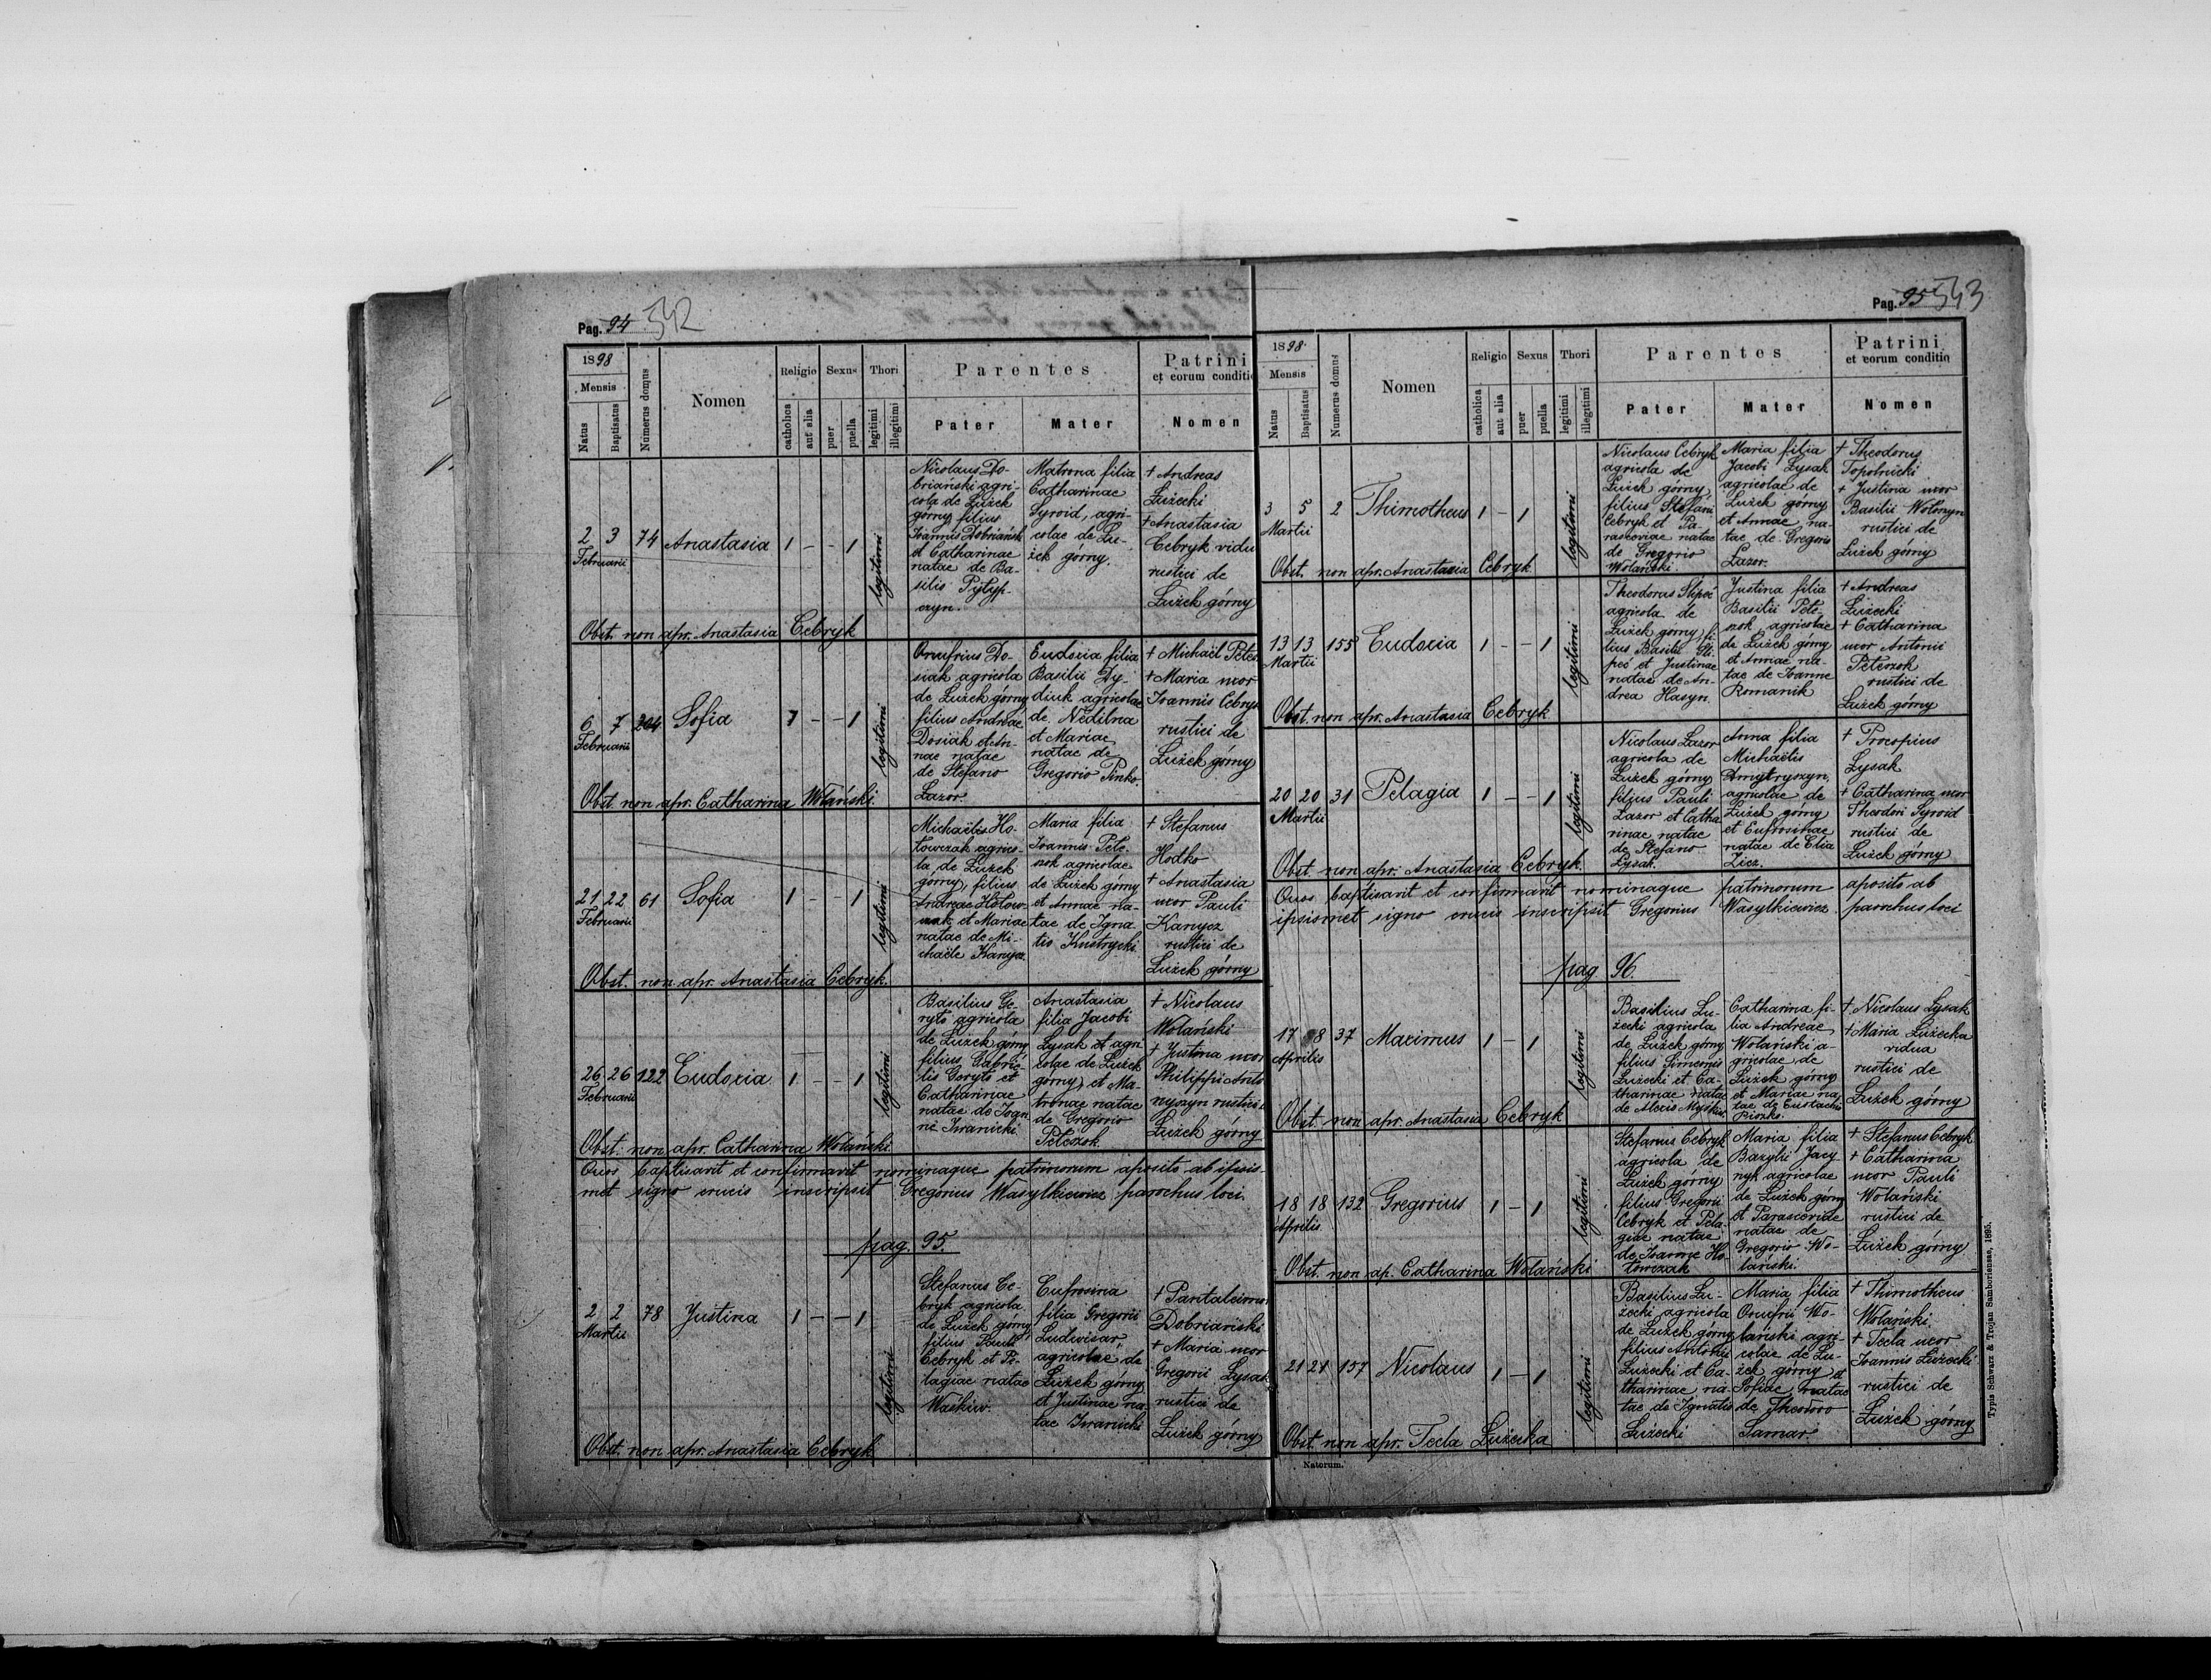 Pag. 94 542
1898
Mensis
Natus
Baptisatus
Numerus domus
Nomen
Religio
catholica
aut alia
Sexus
puer
puella
Thori
legitimi
illegitimi
Parentes
Pater
Mater
Patrini
et eorum conditio
Nomen
2 3 74 Anastasia 1 - - 1 legitimi
Februarii
Nicolaus Do-
briański agri-
cola de Łużek
górny filius
Joannis Dobriański
et Catharinae
natae de Ba-
silio Pyłyp-
czyn.
Matrona filia
Catharinae
Syroid, agri-
colae de Łu-
żek górny.
+ Andreas
Łużecki
+ Anastasia
Cebryk vidu
rustici de
Łużek górny
Obst. non apr. Anastasia Cebryk
6 7 204 Sofia 1 - - 1 legitimi
Februarii
Onufrius Do-
siak agricola
de Łużek górny
filius Andreae
Dosiak et An-
nae natae
de Stefano
Lazor.
Eudoxia filia
Basilii Dy-
diuk agricolae
de Nedilna
et Mariae
natae de
Gregorio Pinko.
+ Michaël Petes
+ Maria uxor
Joannis Cebryk
rustici de
Łużek górny
Obst. non apr. Catharina Wołański.
21 22 61 Sofia 1 - - 1 legitimi
Februarii
Michaëlis Ho-
towczak agrico-
la de Łużek
górny, filius
Andreae Hotow-
czak et Mariae
natae de Mi-
chaële Kanycz
Maria filia
Joannis Pete-
szok agricolae
de Łużek górny
et Annae na-
tae de Igna-
tio Kustrycki.
+ Stefanus
Hodko
+ Anastasia
uxor Pauli
Kanycz
rustici de
Łużek górny
Obst. non apr. Anastasia Cebryk.
26 26 122 Eudoxia 1 - - 1 legitimi
Februarii
Basilius Ge-
ryto agricola
de Łużek górny
filius Gabrie-
lis Geryto et
Catharinae
natae de Joan
ne Iwanicki.
Anastasia
filia Jacobi
Łysak et agri
colae de Łużek
górny et Ma-
tronae natae
de Gregorio
Peteszok
+ Nicolaus
Wołański
+ Justina uxor
Philippi Anto
nyszyn rustici
Łużek górny
Obst. non apr. Catharina Wołański.
Quos baptisavit et confirmavit nominaque patrinorum aposito ab ipsis-
met signo crucis inscripsit Gregorius Wasylkiewicz parochus loci.
pag. 95.
2 2 78 Justina 1 - - 1 legitimi
Martii
Stefanus Ce-
bryk agricola
de Łużek górny
filius Pauli
Cebryk et Pe-
lagiae natae
Waśkiw.
Eufrosina
filia Gregorii
Ludwisar
agricolae de
Łużek górny
et Justinae na-
tae Iwanicki
+ Pantaleimon
Dobriański
+ Maria uxor
Gregorii Łysak
rustici de
Łużek górny
Obst. non apr. Anastasia Cebryk
Pag. 95 543
1898
Mensis
Natus
Baptisatus
Numerus domus
Nomen
Religio
catholica
aut alia
Sexus
puer
puella
Thori
legitimi
illegitimi
Parentes
Pater
Mater
Patrini
et eorum conditio
Nomen
3 5 2 Thimotheus 1 - 1 legitimi
Martii
Nicolaus Cebryk
agricola de
Łużek górny
filius Stefani
Cebryk et Pa-
rasceviae natae
de Gregorio
Wołański.
Maria filia
Jacobi Łysak
agricolae de
Łużek górny
et Annae na-
tae de Gregorio
Lazor.
+ Theodorus
Topolnicki
+ Justina uxor
Basilii
rustici de
Łużek górny
Obst. non apr. Anastasia Cebryk
13 13 155 Eudoxia 1 - - 1 legitimi
Martii
Theodorus Slipeć
agricola de
Łużek górny fi-
lius Basilii Sli-
peć et Justinae
natae de An-
drea Hasyn.
Justina filia
Basilii Pete-
szok agricolae
de Łużek górny
et Annae na-
tae de Joanne
Romanik
+ Andreas
Łużecki
+ Catharina
uxor Antonii
Peteszok
rustici de
Łużek górny
Obst. non apr. Anastasia Cebryk
20 20 31 Pelagia 1 - - 1 legitimi
Martii
Nicolaus Lazor
agricola de
Łużek górny
filius Pauli
Lazor et Catha
rinae natae
de Stefano
Łysak.
Anna filia
Michaëlis
Dmytryszyn,
agricolae de
Łużek górny
et Eufrosinae
natae de Elia
Zicz.
+ Procopius
Łysak
+ Catharina uxor
Theodori Syroid
rustici de
Łużek górny
Obst. non apr. Anastasia Cebryk.
Quos baptisavit et confirmavit nominaque patrinorum aposito ab
ipsismet signo crucis inscripsit Gregorius Wasylkiewicz parochus loci
pag 96.
17 18 37 Maximus 1 - 1 legitimi
Aprilis
Basilius Łu-
żecki agricola
de Łużek górny
filius Simeonis
Łużecki et Ca-
tharinae natae
de Alexio Myśkiw.
Catharina fi-
lia Andreae
Wołański a-
gricolae de
Łużek górny
et Mariae na
tae de Eustachio
Piszko.
+ Nicolaus Łysak
+ Maria Łużecka
vidua
rustici de
Łużek górny
Obst. non apr. Anastasia Cebryk
18 18 132 Gregorius 1 - 1 legitimi
Aprilis
Stefanus Cebryk
agricola de
Łużek górny
filius Gregorii
Cebryk et Pela-
giae natae
de Joanne Ho-
towczak
Maria filia
Bazylii Jacy-
nyk agricolae
de Łużek górny
et Parasceviae
natae de
Gregorio Wo-
łański.
+ Stefanus Cebryk
+ Catharina
uxor Pauli
Wołański
rustici de
Łużek górny
Obst. non ap. Catharina Wołański
21 21 157 Nicolaus 1 - 1 legitimi
Basilius Łu-
żecki agricola
de Łużek górny
filius Antonii
Łużecki et Ca-
tharinae na-
tae de Ignatio
Łużecki
Maria filia
Onufrii Wo-
łański agri-
colae de Łu-
żek górny et
Sofiae natae
de Theodoro
Samar.
+ Thimotheus
Wołański.
+ Tecla uxor
Joannis Łużecki
rustici de
Łużek górny
Obst. non apr. Tecla Łużecka
Natorum.
Typis Schwarz & Trojan Samboriense, 1895.